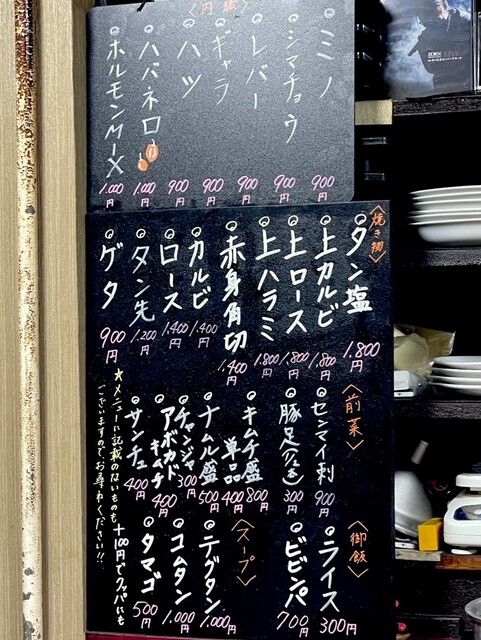 〈内臓〉
ミノ 900円
シマチョウ 900円
レバー 900円
ギャラ 900円
ハツ 900円
ハバネロ 1,000円
ホルモンMIX 1,000円
〈焼き物〉
タン塩 1,800円
上カルビ 1,800円
上ロース 1,800円
上ハラミ 1,800円
赤身角切 1,400円
カルビ 1,400円
ロース 1,400円
タン先 1,200円
ゲタ 900円
〈前菜〉
センマイ刺 900円
豚足 300円
キムチ盛 800円
単品 400円
ナムル盛 500円
チャンジャ 300円
アボカドキムチ 400円
サンチュ 400円
〈御飯〉
ライス 300円
ビビンパ 700円
〈スープ〉
テグタン 1,000円
コムタン 1,000円
タマゴ 500円
★メニューに記載のないものも
ございますので、お尋ねください!!
+100円でクッパにも